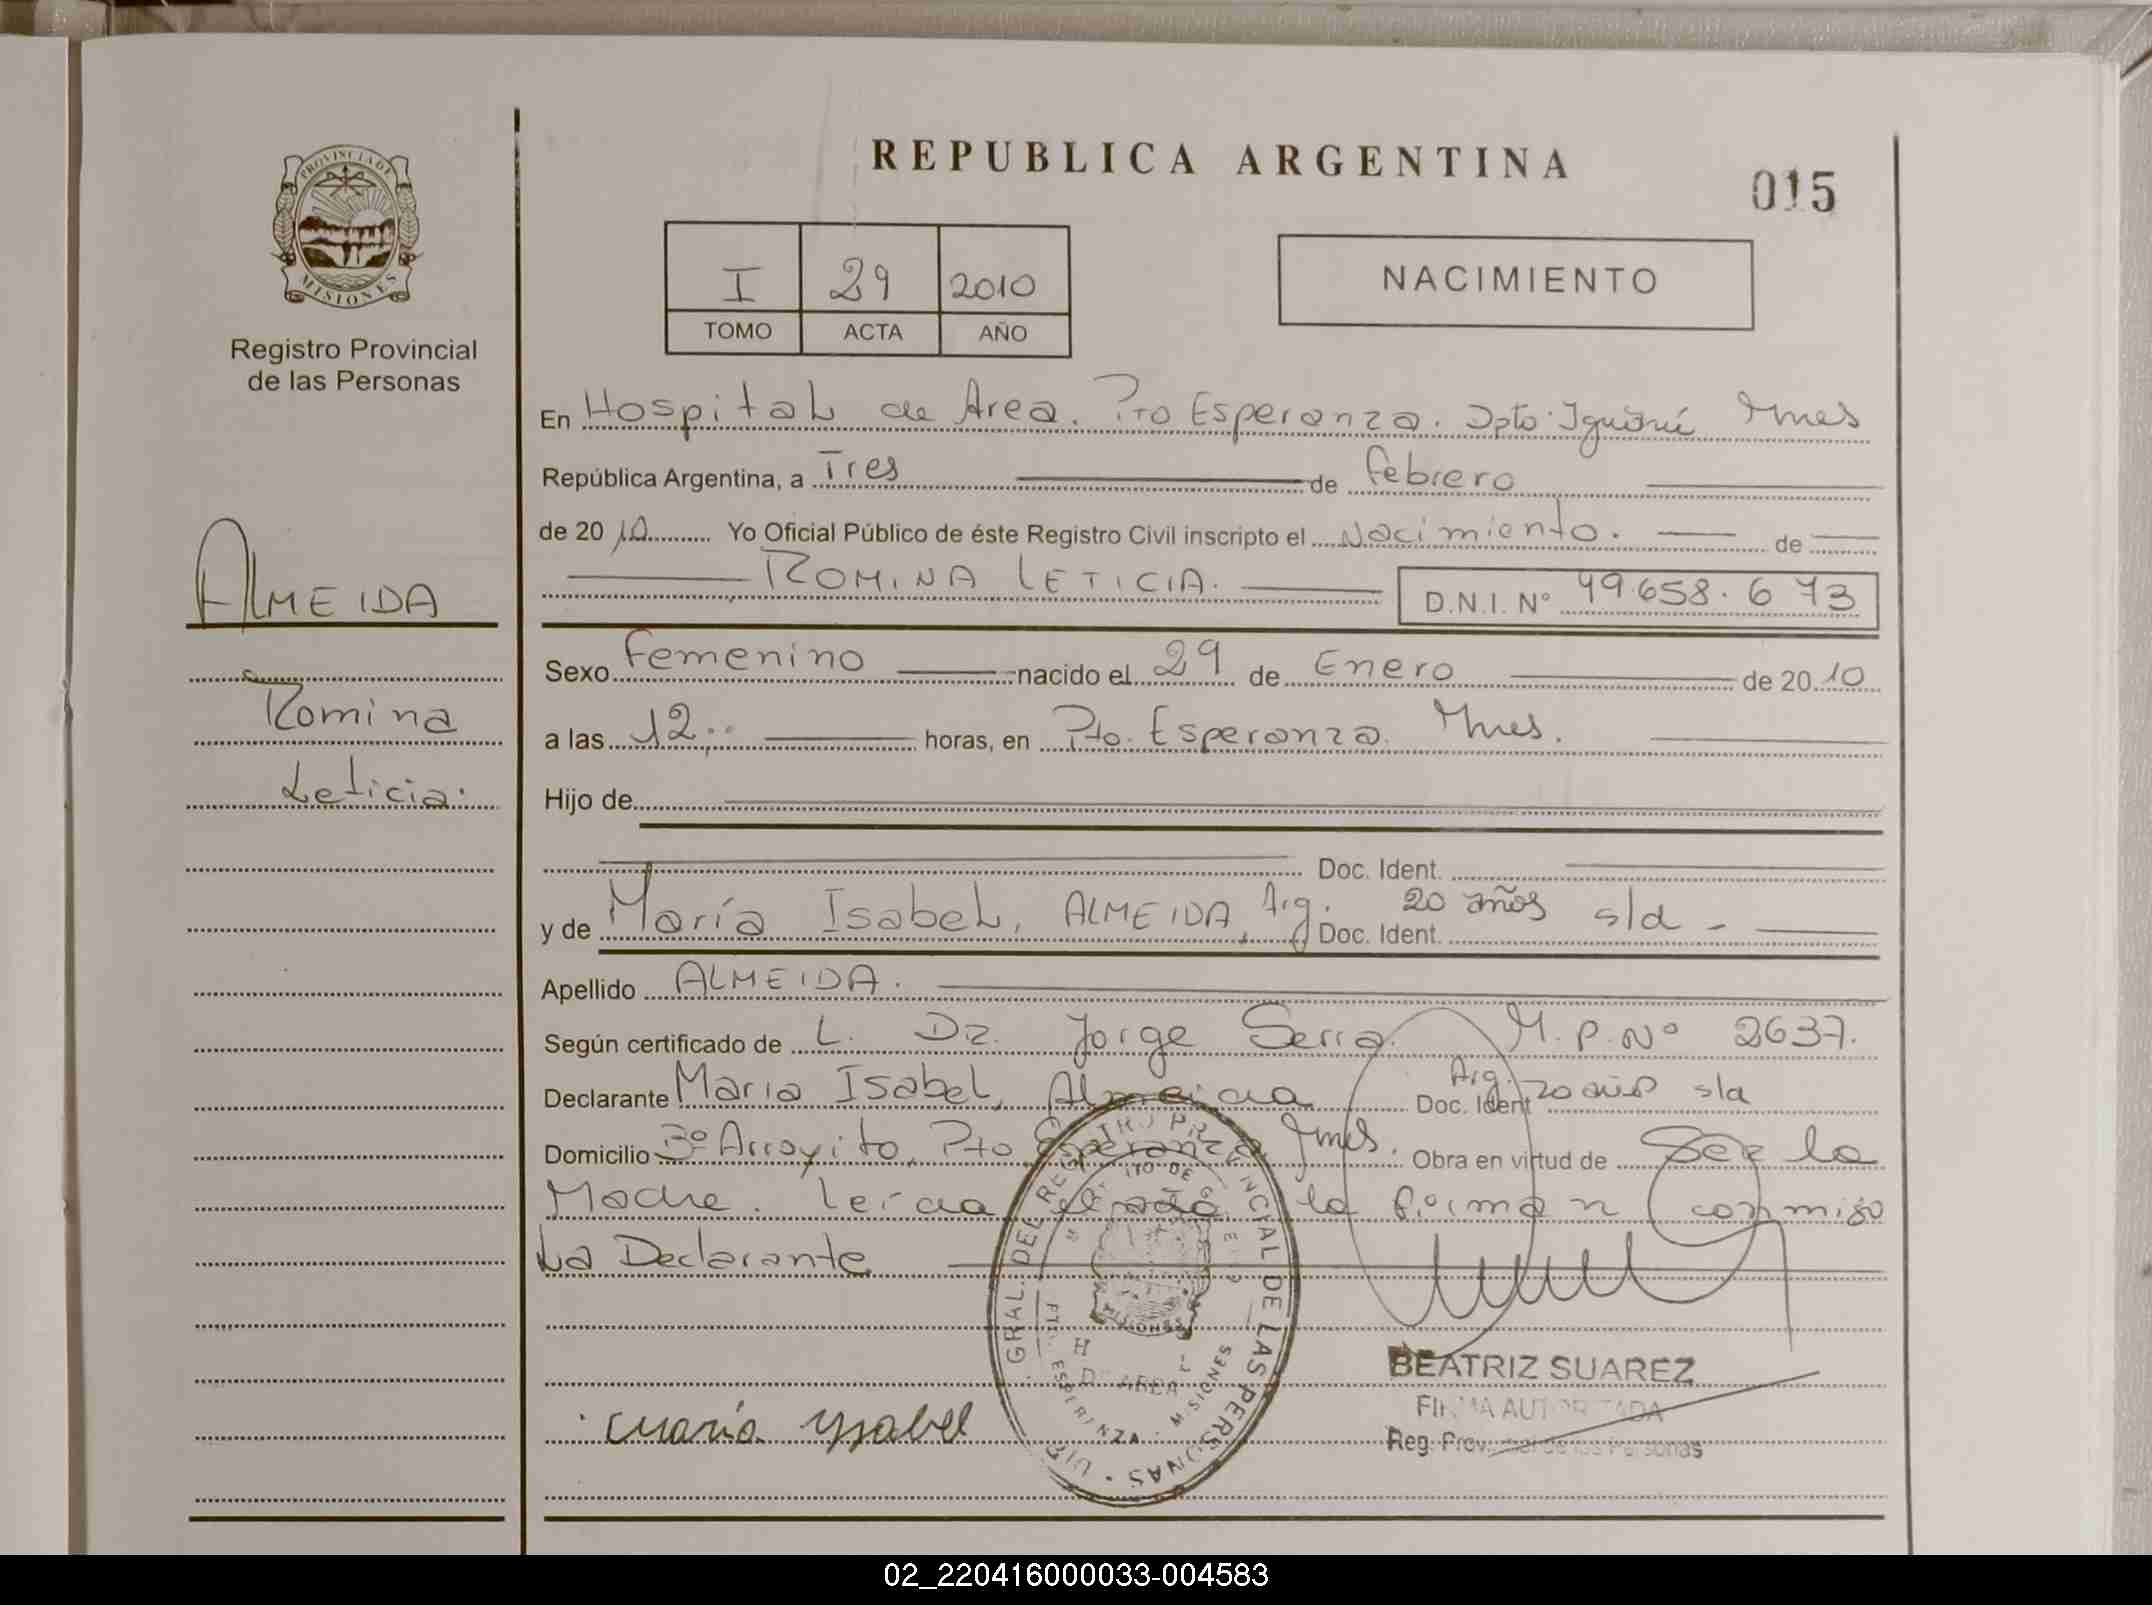 REPUBLICA ARGENTINA
015
PROVINCIA DE
MISIONES
Registro Provincial
de las Personas
I 29 2010
TOMO ACTA AÑO
NACIMIENTO
En Hospital de Area. Pto Esperanza. Dpto Iguazú Mnes
República Argentina, a Tres de febrero
de 2010 Yo Oficial Público de éste Registro Civil inscripto el Nacimiento. de
ROMINA LETICIA. D.N.I. Nº 49.658.673
ALMEIDA
Romina
Leticia.
Sexo Femenino nacido el 29 de Enero de 2010
a las 12.. horas, en Pto. Esperanza. Mnes.
Hijo de
Doc. Ident.
y de María Isabel, ALMEIDA, Arg. Doc. Ident. 20 años s/d -
Apellido ALMEIDA.
Según certificado de L. Dr. Jorge Serra. M.P. Nº 2637.
Declarante Maria Isabel, Almeida Arg. Doc. Ident 20 años s/d
Domicilio Bº Arroyito, Pto Esperanza Mnes. Obra en virtud de Ser la
Madre. Leida el acta la firman conmigo
La Declarante
GRAL. DEL REGISTRO PROVINCIAL DE LAS PERSONAS
MISIONES
AREA
PTO. ESPERANZA - MISIONES
María Ysabel
BEATRIZ SUAREZ
FIRMA AUTORIZADA
Reg. Prov. de las Personas
02_220416000033-004583